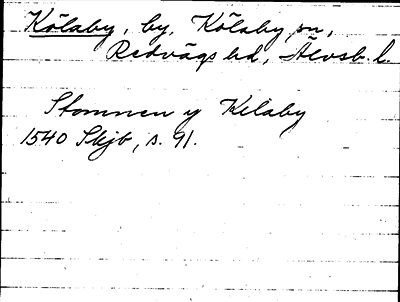 Kölaby, by, Kölaby sn,
Redvägs hd, Älvsb. l.
Stommen y Kelaby
1540 Skjb, s. 91.